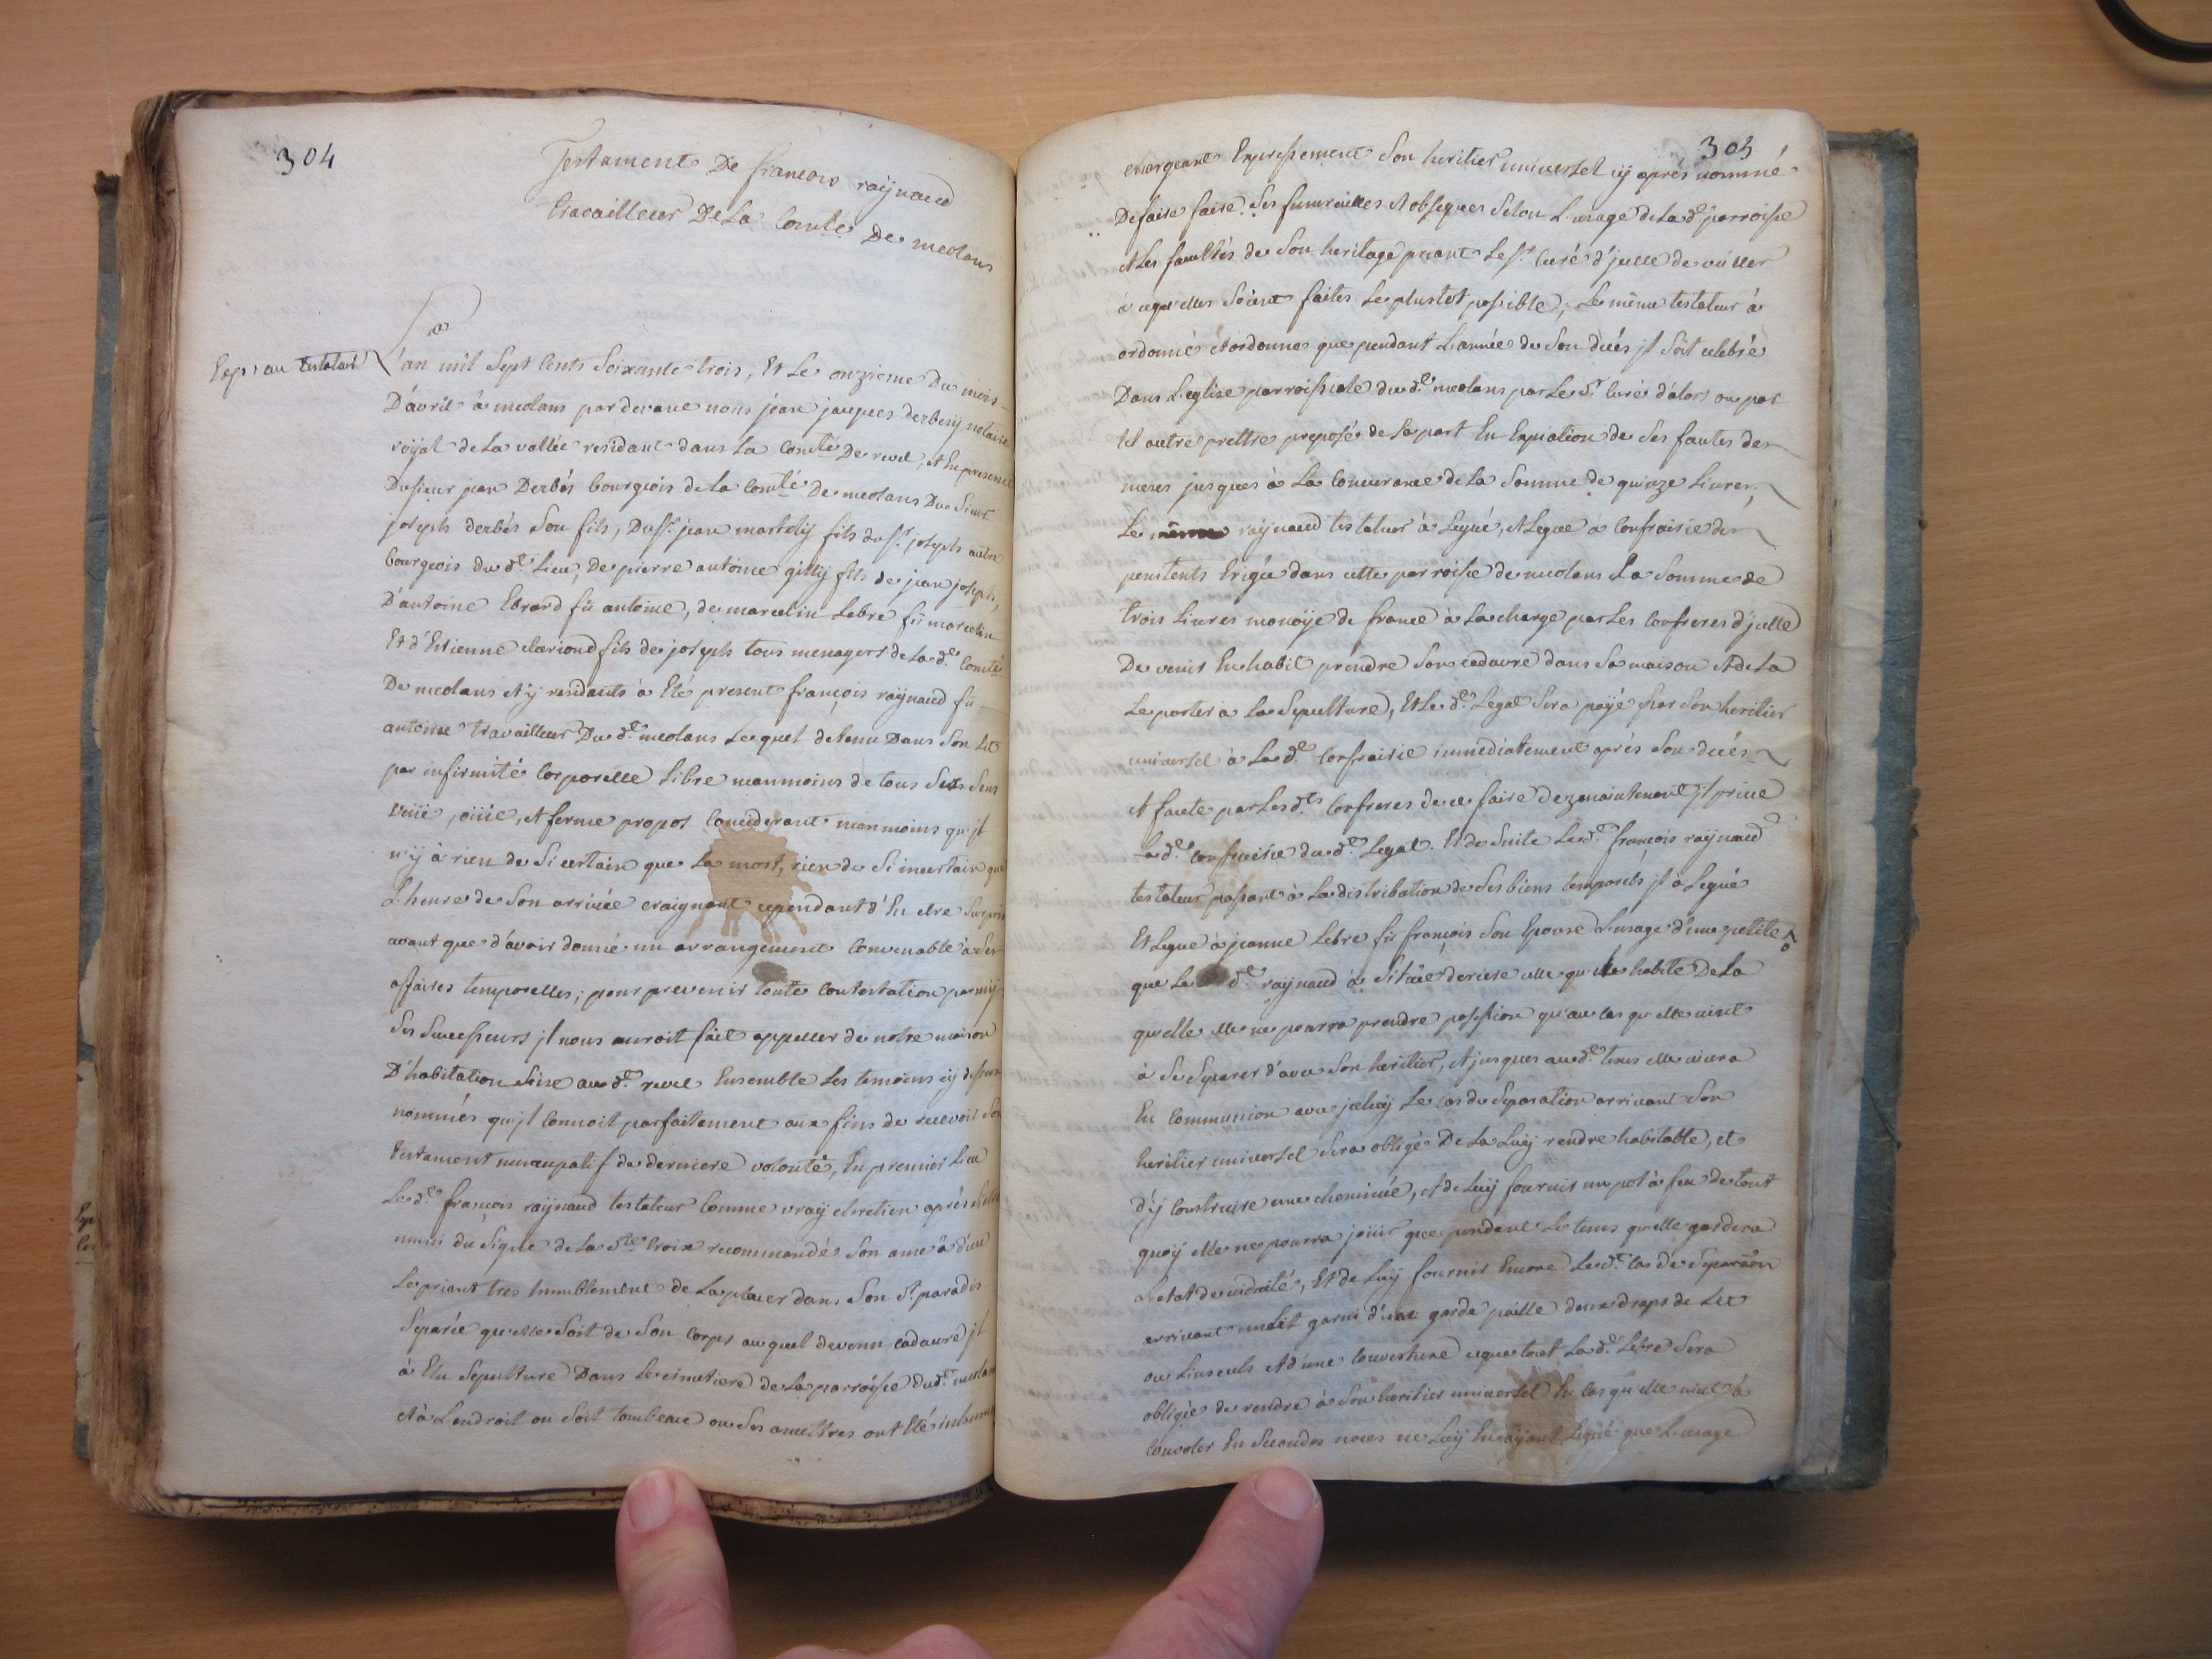 304
Testament De francois raÿnaud
travailleur De La Comté De meolans
Exp. au testateur
L'an mil Sept Cents Soixante trois, Et Le onzieme Du mois
D'avril à meolans par devant nous jean jacques derbesy notaire
roÿal de La vallée residant dans La Comté De revel, et En presence
Du sieur jean Derbés bourgeois de La Comté De meolans Du Sieur
joseph derbés Son fils, Du Sr. jean martelly fils du Sr. joseph autre
bourgeois du dt. Lieu, De pierre antoine gilly fils de jean joseph,
D'antoine Ebrard fû antoine, de marcelin Lebre fû marcelin
Et d'Estienne clariond fils de joseph tous menagers de La de. Comté
De meolans et y residants à Eté present françois raÿnaud fû
antoine travailleur Du dt. meolans Lequel detenu Dans Son Lit
par infirmité Corporelle Libre neanmoins de tous Ses Sens
vüie, oüie, et ferme propos Considerant neanmoins qu'jl
n'ÿ à rien de Si certain que La mort, rien de Si incertain que
L'heure de Son arrivée craignant cependant d'En etre Surpris
avant que d'avoir donné un arrangement Convenable à Ses
affaires temporelles, pour prevenir toute Contestation parmÿ
Ses Successeurs jl nous auroit fait appeller de notre maison
D'habitation Sise au dt. revel Ensemble Les temoins cy dessus
nommés qu'jl Connoit parfaitement aux fins de recevoir Son
testament nuncupatif de derniere volonté, En premier Lieu
Le dt. françois raÿnaud testateur Comme vraÿ chretien aprés s'être
muni du Signe de La Ste. Croix recommandé Son ame à dieu
Le priant tres humblement de La placer dans Son St. paradis
Separée qu'elle Soit de Son Corps au quel devenu cadavre jl
à Elu Sepulture Dans Le cimetiere de La parroisse du dt. meolans
et à L'endroit ou Soit tombeau ou Ses ancettres ont Eté inhumés
305
chargeant Expressement Son heritier universel cÿ aprés nommé
De faire faire Ses funerailles et obseques Selon L'usage de La de. parroisse
et Les facultés de Son heritage priant Le Sr. Curé d'jcelle de veiller
à ce qu'elles Soient faites Le plustot possible; Le même testateur à
ordonné et ordonne que pendant L'année de Son decés jl Soit celebré
Dans L'eglise parroissiale du dt. meolans par Le Sr. Curé d'alors ou par
tel autre prettre preposé de Sa part En Expiation de Ses fautes des
messes jusques à La Concurrance de La Somme de quinze Livres,
Le même raÿnaud testateur à Legué, et Legue à Confrairie des
penitents Erigée dans cette parroisse de meolans La Somme de
trois Livres monoÿe de france à La charge par Les Confreres d'jcelle
De venir En habit prendre Son cadavre dans Sa maison et de La
Le porter à La Sepulture, Et Le dt. Legat Sera paÿé par Son heritier
universel à La de. Confrairie immediatement aprés Son decés
et faute par Les dts. Confreres de ce faire dez maintenant jl prive
La de. Confrairie du dt. Legat. Et de Suite Le dt. françois raÿnaud
testateur passant à La distribution de Ses biens temporels jl à Legué
Et Legue à jeanne Lebre fû françois Son Epouse L'usage d'une petite
que Le dt. raÿnaud à Sitüée deriere celle qu'elle habite De La
quelle elle ne pourra prendre possession qu'au Cas qu'elle vint
à Se Separer d'avec Son heritier, et jusques au dt. tems elle vivra
En Communion avec jceluÿ Le Cas de Separation arrivant Son
heritier universel Sera obligé De La Luÿ rendre habitable, et
d'ÿ Construire une cheminée, et de Luÿ fournir un pot à feu de tout
quoÿ elle ne pourra joüir que pendant Le tems qu'elle gardera
L'etat de viduité, Et de Luÿ fournir Encore Le dt. Cas de Separaon
arrivant un Lit garni d'une garde paille deux draps de Lit
ou Linceuls et d'une Couverture ce que tout La de. Lebre Sera
obligée de rendre à Son heritier universel En Cas qu'elle vint à
Convoler En Secondes noces ne Luÿ En aÿant Legué que L'usage